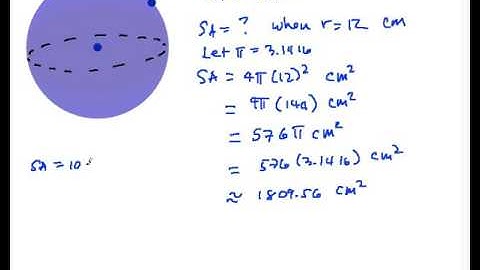 SA = ? when r = 12 cm
Let π = 3.1416
SA = 4π(12)² cm²
= 4π(144) cm²
= 576π cm²
= 576(3.1416) cm²
≈ 1809.56 cm²
SA = 10